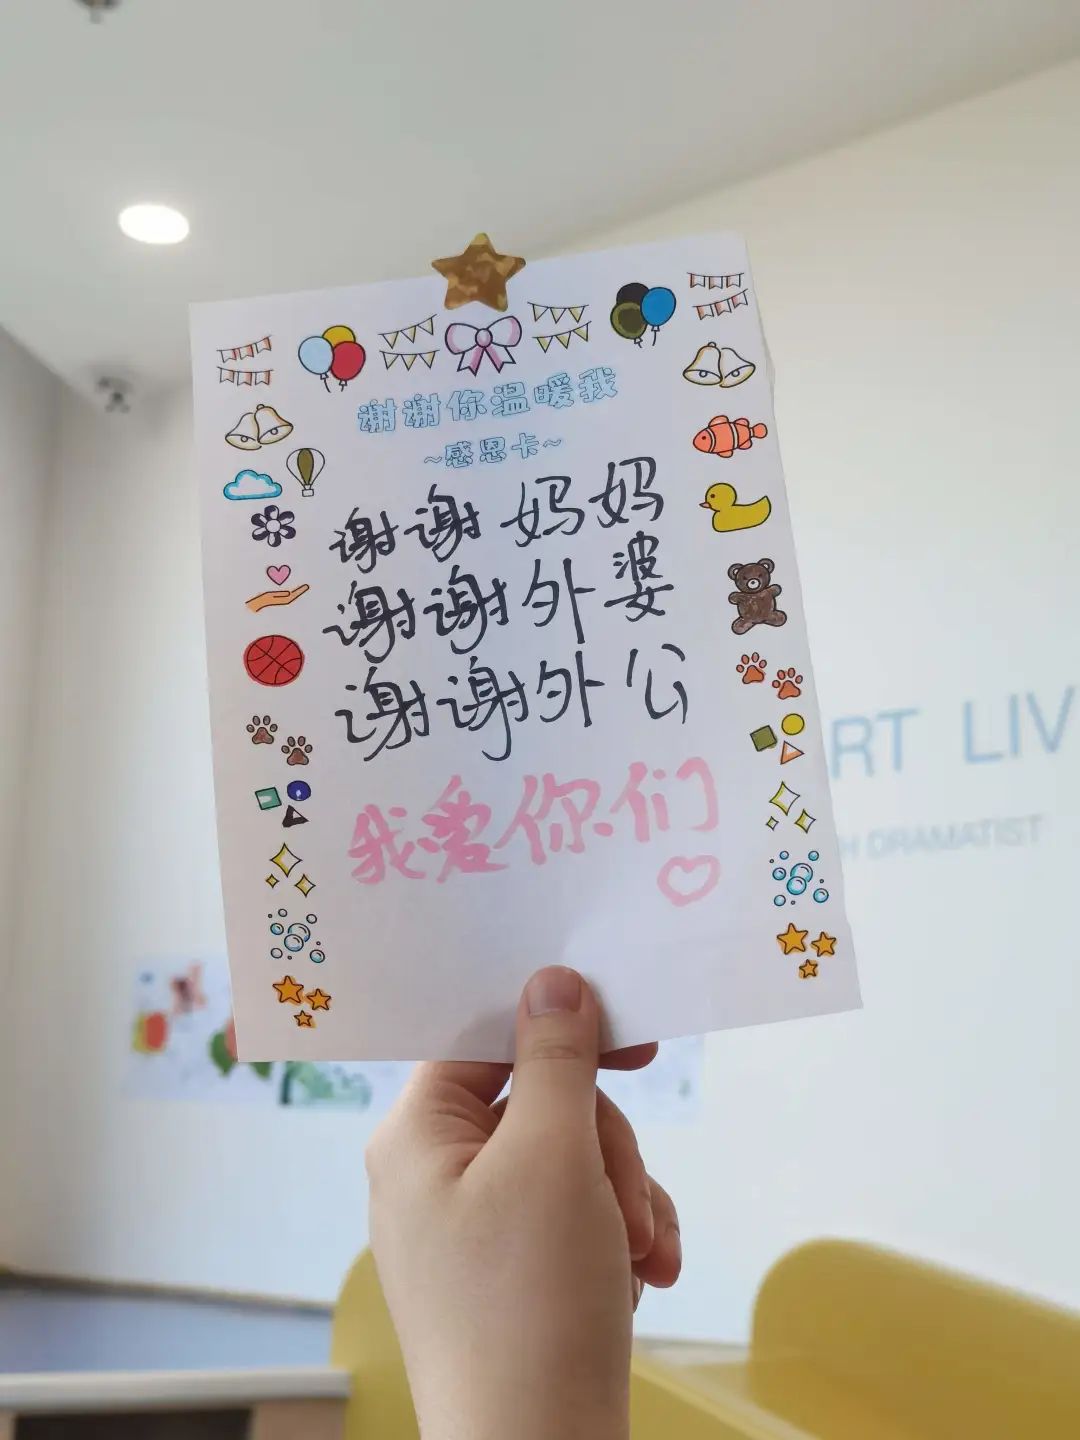 谢谢你温暖我
~感恩卡~
谢谢妈妈
谢谢外婆
谢谢外公
我爱你们
RT LIV
H DRAMATIST